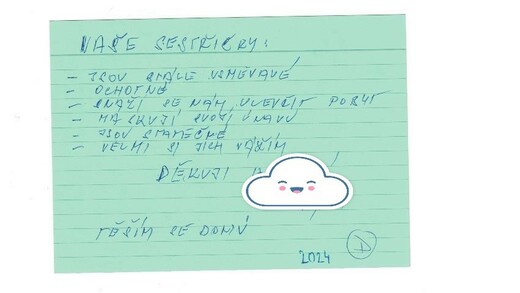 NAŠE SESTŘIČKY:
- JSOU STÁLE USMĚVAVÉ
- OCHOTNÉ
- SNAŽÍ SE NÁM ULEVŠIT POBYT
- MASKUJÍ SVOJÍ ÚNAVU
- JSOU STATEČNÉ
- VELMI SI JICH VÁŽÍM
DĚKUJI
TĚŠÍM SE DOMŮ
2024